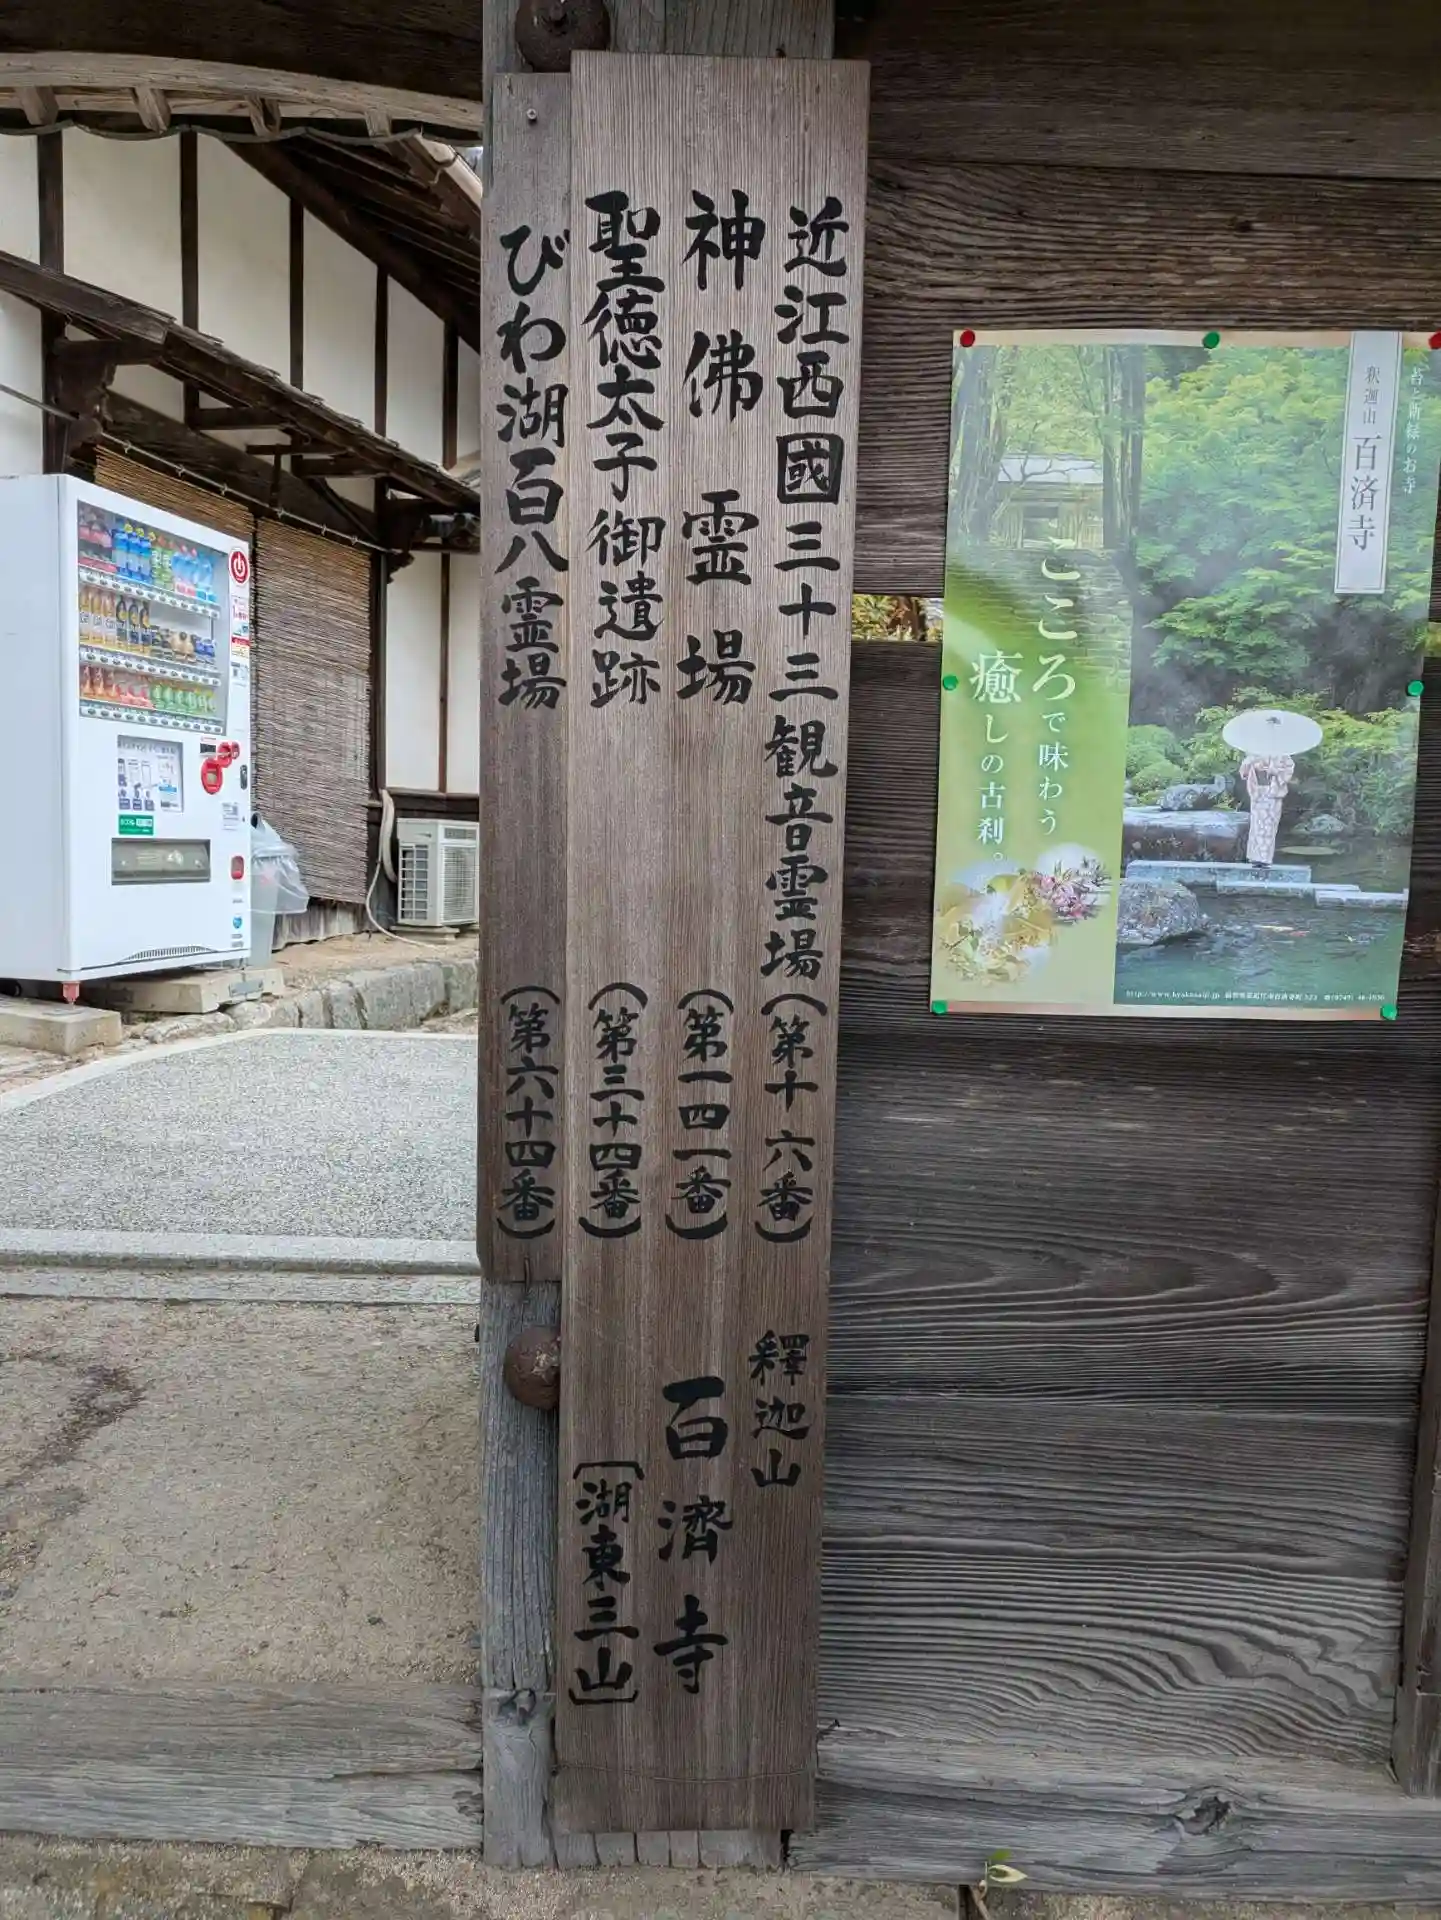 近江西國三十三観音霊場(第十六番)
神佛霊場(第一四一番)
聖徳太子御遺跡(第三十四番)
びわ湖百八霊場(第六十四番)
釋迦山
百濟寺
〔湖東三山〕
苔と新緑のお寺
釈迦山 百済寺
こころで味わう
癒しの古刹。